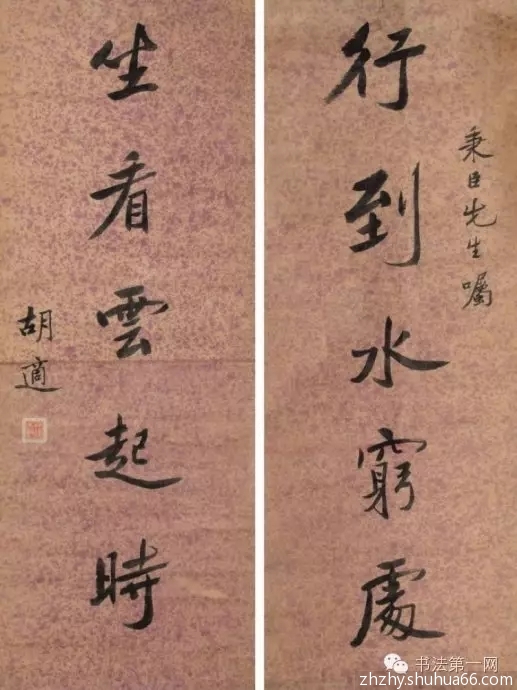 行到水窮處
秉臣先生囑
坐看雲起時
胡適
书法第一网
zhzhy.shuhua66.com